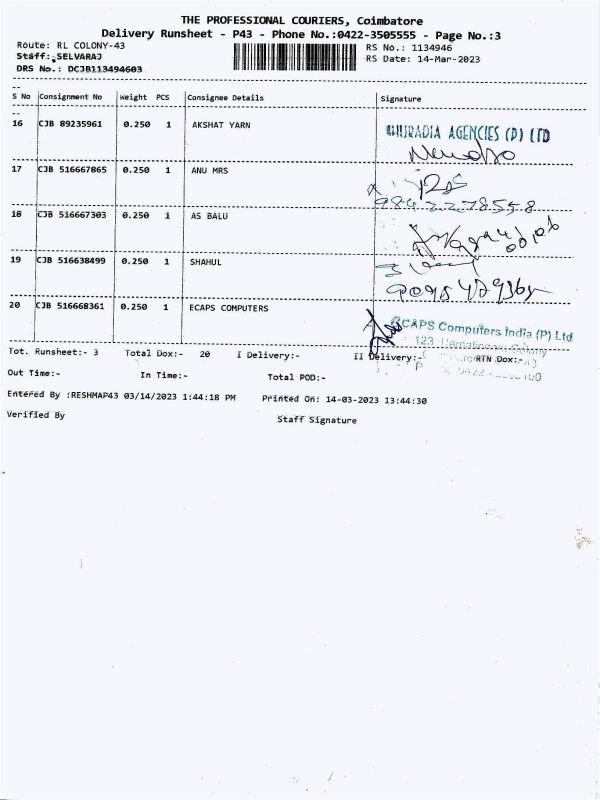 THE PROFESSIONAL COURIERS, Coimbatore
Delivery Runsheet - P43 - Phone No.:0422-3505555 - Page No.:3
Route: RL COLONY-43
RS No.: 1134946
Staff: SELVARAJ
RS Date: 14-Mar-2023
DRS No.: DCJB113494603
S No Consignment No Weight PCS Consignee Details Signature
16 CJB 89235961 0.250 1 AKSHAT YARN
BHURADIA AGENCIES (P) LTD
17 CJB 516667865 0.250 1 ANU MRS
18 CJB 516667303 0.250 1 AS BALU
19 CJB 516638499 0.250 1 SHAHUL
20 CJB 516668361 0.250 1 ECAPS COMPUTERS
ECAPS Computers India (P) Ltd
123
Tot. Runsheet:- 3 Total Dox:- 20 I Delivery:- II Delivery:- RTN Dox:-
Out Time:- In Time:- Total POD:-
Entered By :RESHMAP43 03/14/2023 1:44:18 PM Printed On: 14-03-2023 13:44:30
Verified By Staff Signature